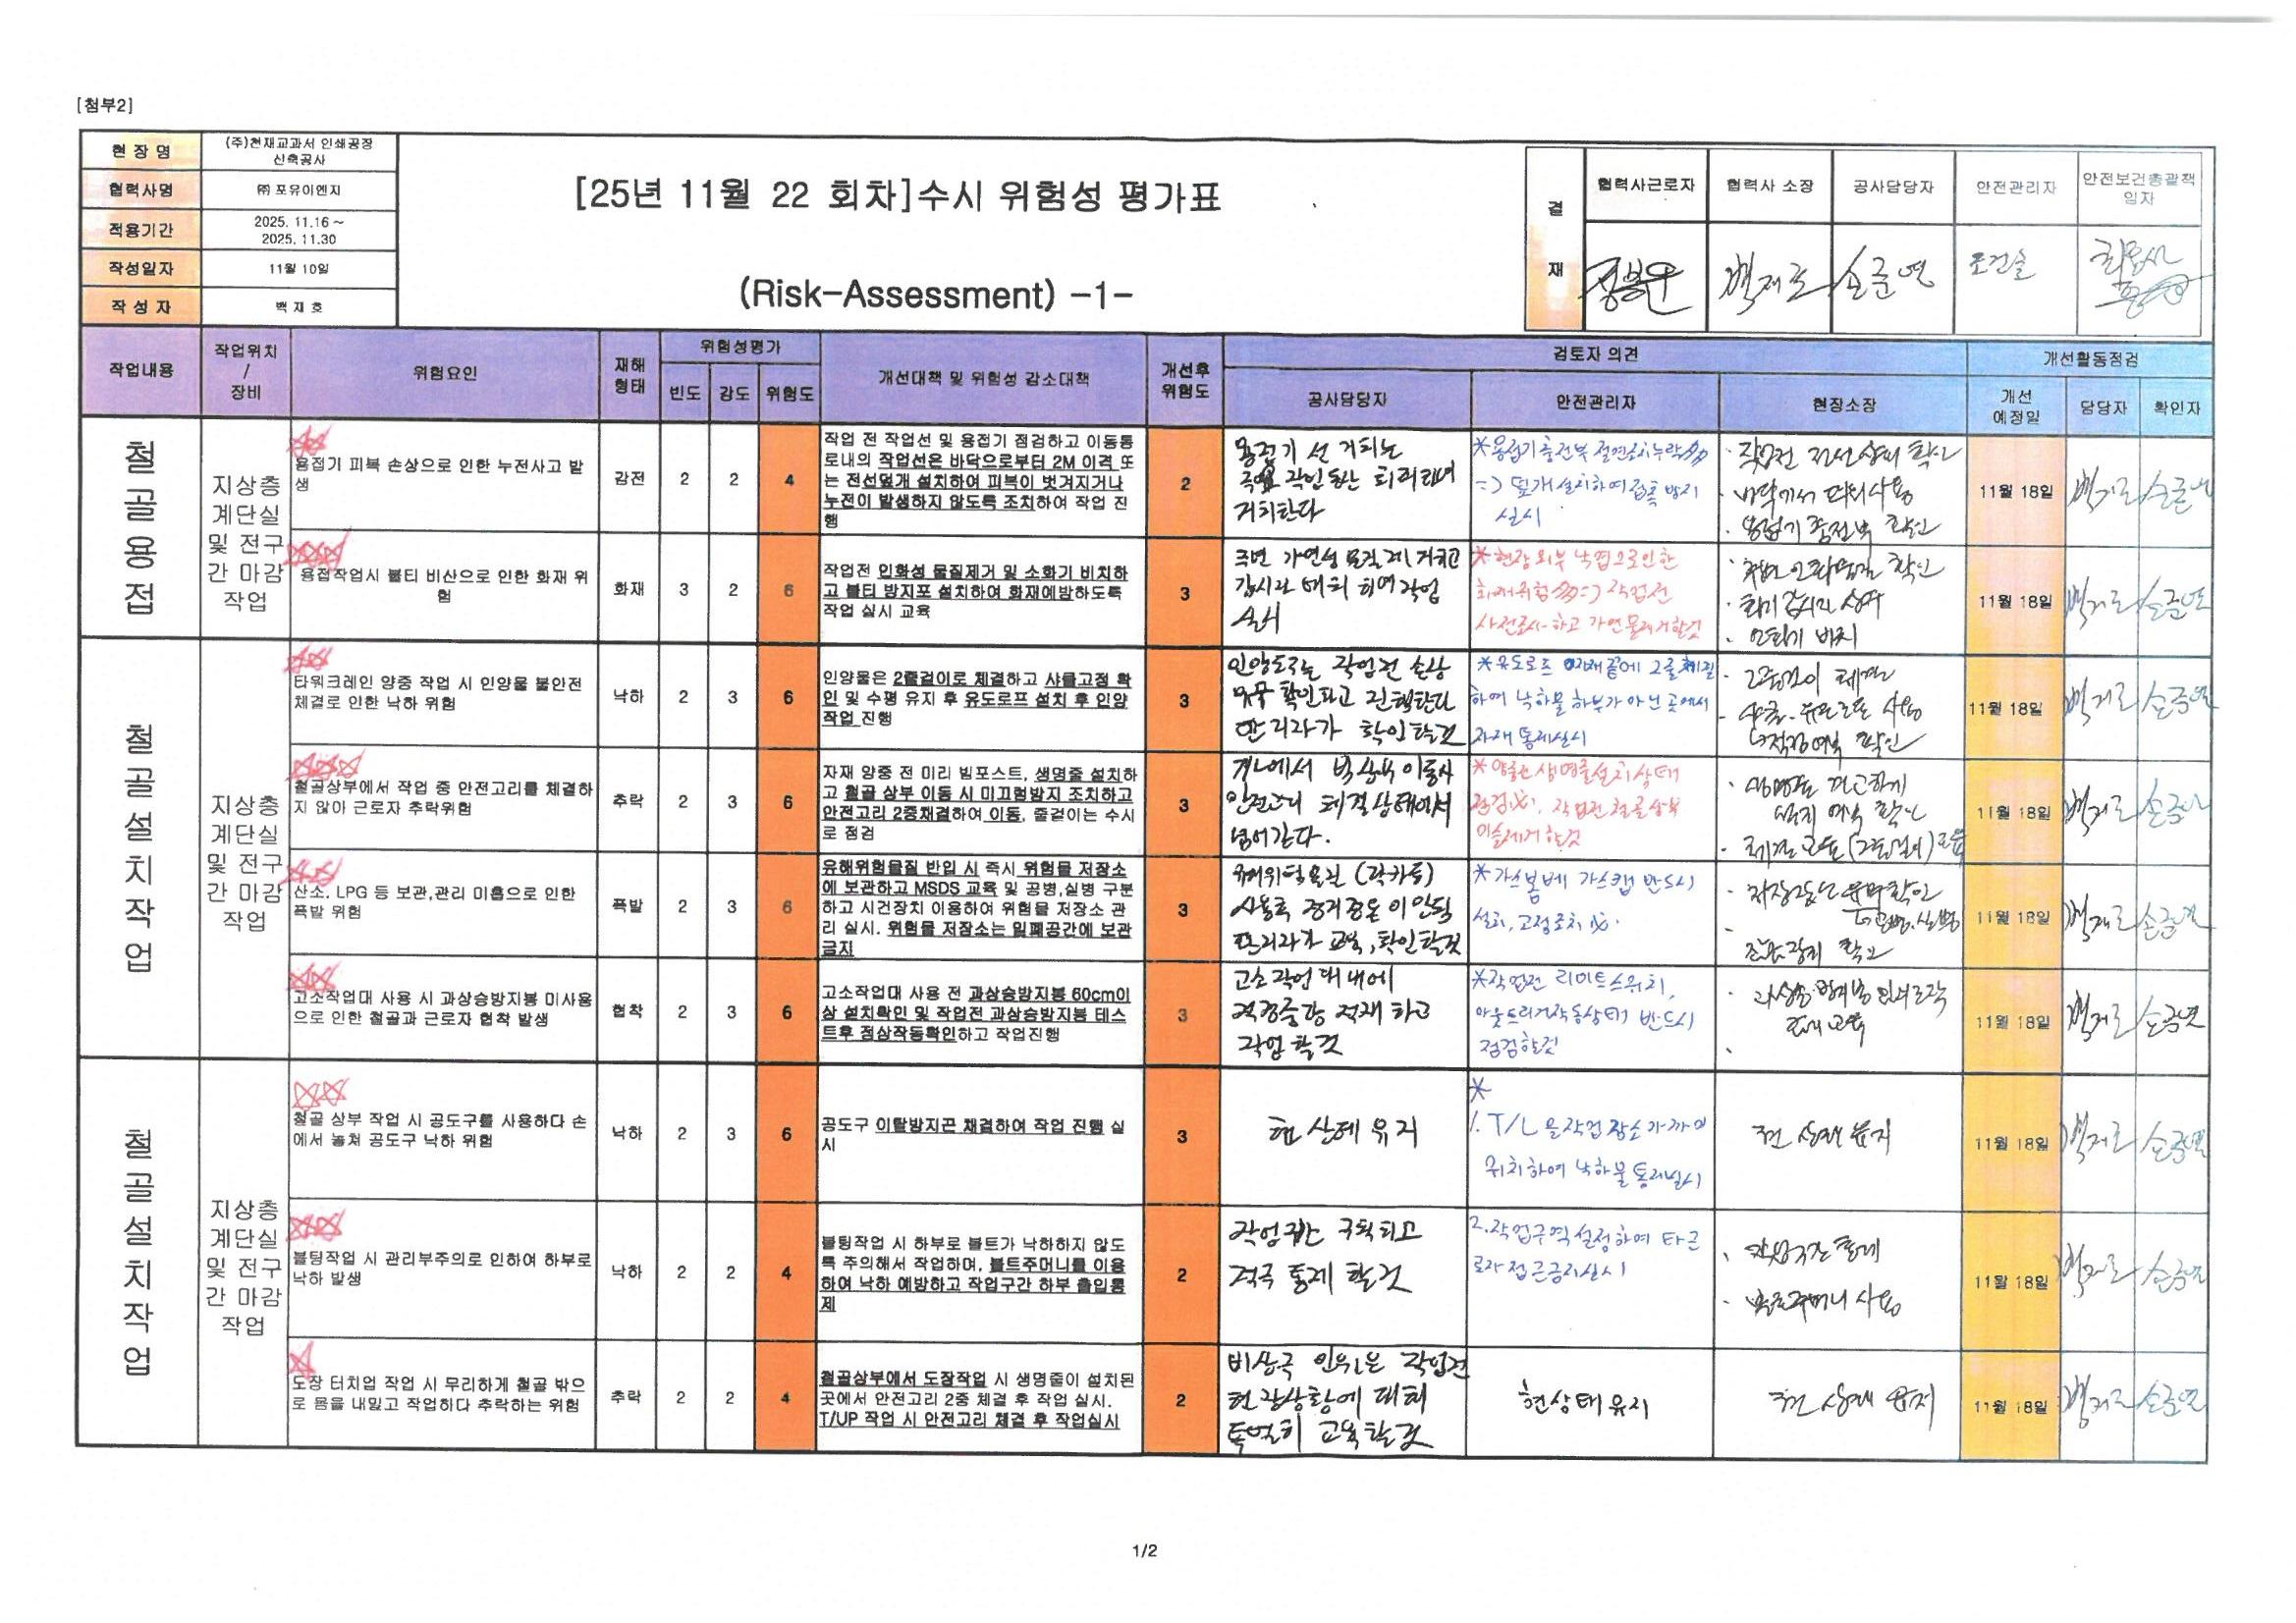 [첨부2]
현 장 명
(주)천재교과서 인쇄공장
신축공사
협력사명
㈜ 포유이엔지
적용기간
2025. 11.16 ~
2025. 11.30
작성일자
11월 10일
작 성 자
백 재 호
[25년 11월 22 회차]수시 위험성 평가표
(Risk-Assessment) -1-
결
재
협력사근로자
협력사 소장
공사담당자
안전관리자
안전보건총괄책
임자
백재호
손준연
작업내용
작업위치
/
장비
위험요인
재해
형태
위험성평가
빈도
강도
위험도
개선대책 및 위험성 감소대책
개선후
위험도
검토자 의견
공사담당자
안전관리자
현장소장
개선활동점검
개선
예정일
담당자
확인자
철골용접
지상층
계단실
및 전구
간 마감
작업
용접기 피복 손상으로 인한 누전사고 발
생
감전
2
2
4
작업 전 작업선 및 용접기 점검하고 이동통
로내의 작업선은 바닥으로부터 2M 이격 또
는 전선덮개 설치하여 피복이 벗겨지거나
누전이 발생하지 않도록 조치하여 작업 진
행
2
용접기 선 거치는
거치한다
*용접기충전부 절연조치누락多
=> 덮개설치하여접촉방지
실시
작업전 전선상태 확인
바닥에서 띄워사용
용접기 충전부 확인
11월 18일
용접작업시 불티 비산으로 인한 화재 위
험
화재
3
2
6
작업전 인화성 물질제거 및 소화기 비치하
고 불티 방지포 설치하여 화재예방하도록
작업 실시 교육
3
주변 가연성 물질 제거하고
감시자 배치 하여 작업
실시
*현장외부 낙엽으로인한
화재위험多=> 작업전
사전조사하고 가연물제거할것
화기감시자
소화기 비치
11월 18일
철골설치작업
지상층
계단실
및 전구
간 마감
작업
타워크레인 양중 작업 시 인양물 불안전
체결로 인한 낙하 위험
낙하
2
3
6
인양물은 2줄걸이로 체결하고 샤클고정 확
인 및 수평 유지 후 유도로프 설치 후 인양
작업 진행
3
인양도구는 작업전 손상
유무 확인하고 진행한다
관리자가 확인할것
*유도로프 자재끝에 2줄체결
하여 낙하물 하부가 아닌 곳에서
자재 통제실시
2줄걸이 체결
샤클. 유도로프 사용
11월 18일
철골상부에서 작업 중 안전고리를 체결하
지 않아 근로자 추락위험
추락
2
3
6
자재 양중 전 미리 빔포스트, 생명줄 설치하
고 철골 상부 이동 시 미끄럼방지 조치하고
안전고리 2중체결하여 이동, 줄걸이는 수시
로 점검
3
거더에서 빔상부 이동시
안전고리 체결상태에서
넘어간다.
생명줄설치상태
점검必, 작업전 철골상부
이슬제거할것
생명줄 견고하게
설치 여부 확인
11월 18일
산소. LPG 등 보관,관리 미흡으로 인한
폭발 위험
폭발
2
3
6
유해위험물질 반입 시 즉시 위험물 저장소
에 보관하고 MSDS 교육 및 공병,실병 구분
하고 시건장치 이용하여 위험물 저장소 관
리 실시. 위험물 저장소는 밀폐공간에 보관
금지
3
유해위험물질
관리자가 교육,확인할것
*가스봄베 가스캡 반드시
설치, 고정조치 必.
11월 18일
고소작업대 사용 시 과상승방지봉 미사용
으로 인한 철골과 근로자 협착 발생
협착
2
3
6
고소작업대 사용 전 과상승방지봉 60cm이
상 설치확인 및 작업전 과상승방지봉 테스
트후 정상작동확인하고 작업진행
3
고소작업대내에
적정중량 적재 하고
작업할것
*작업전 리미트스위치,
아웃트리거작동상태 반드시
점검할것
11월 18일
철골설치작업
지상층
계단실
및 전구
간 마감
작업
철골 상부 작업 시 공도구를 사용하다 손
에서 놓쳐 공도구 낙하 위험
낙하
2
3
6
공도구 이탈방지끈 채결하여 작업 진행 실
시
3
현 상태 유지
*
1. T/L 을작업장소가까이
위치하여 낙하물통제실시
현 상태 유지
11월 18일
볼팅작업 시 관리부주의로 인하여 하부로
낙하 발생
낙하
2
2
4
볼팅작업 시 하부로 볼트가 낙하하지 않도
록 주의해서 작업하며, 볼트주머니를 이용
하여 낙하 예방하고 작업구간 하부 출입통
제
2
작업구간 구획하고
적극 통제 할것
2.작업구역설정하여 타근
로자접근금지실시
작업구간 통제
볼트주머니 사용
11월 18일
도장 터치업 작업 시 무리하게 철골 밖으
로 몸을 내밀고 작업하다 추락하는 위험
추락
2
2
4
철골상부에서 도장작업 시 생명줄이 설치된
곳에서 안전고리 2중 체결 후 작업 실시.
T/UP 작업 시 안전고리 체결 후 작업실시
2
현장상황에 대해
특별히 교육할것
현상태유지
현 상태 유지
11월 18일
1/2